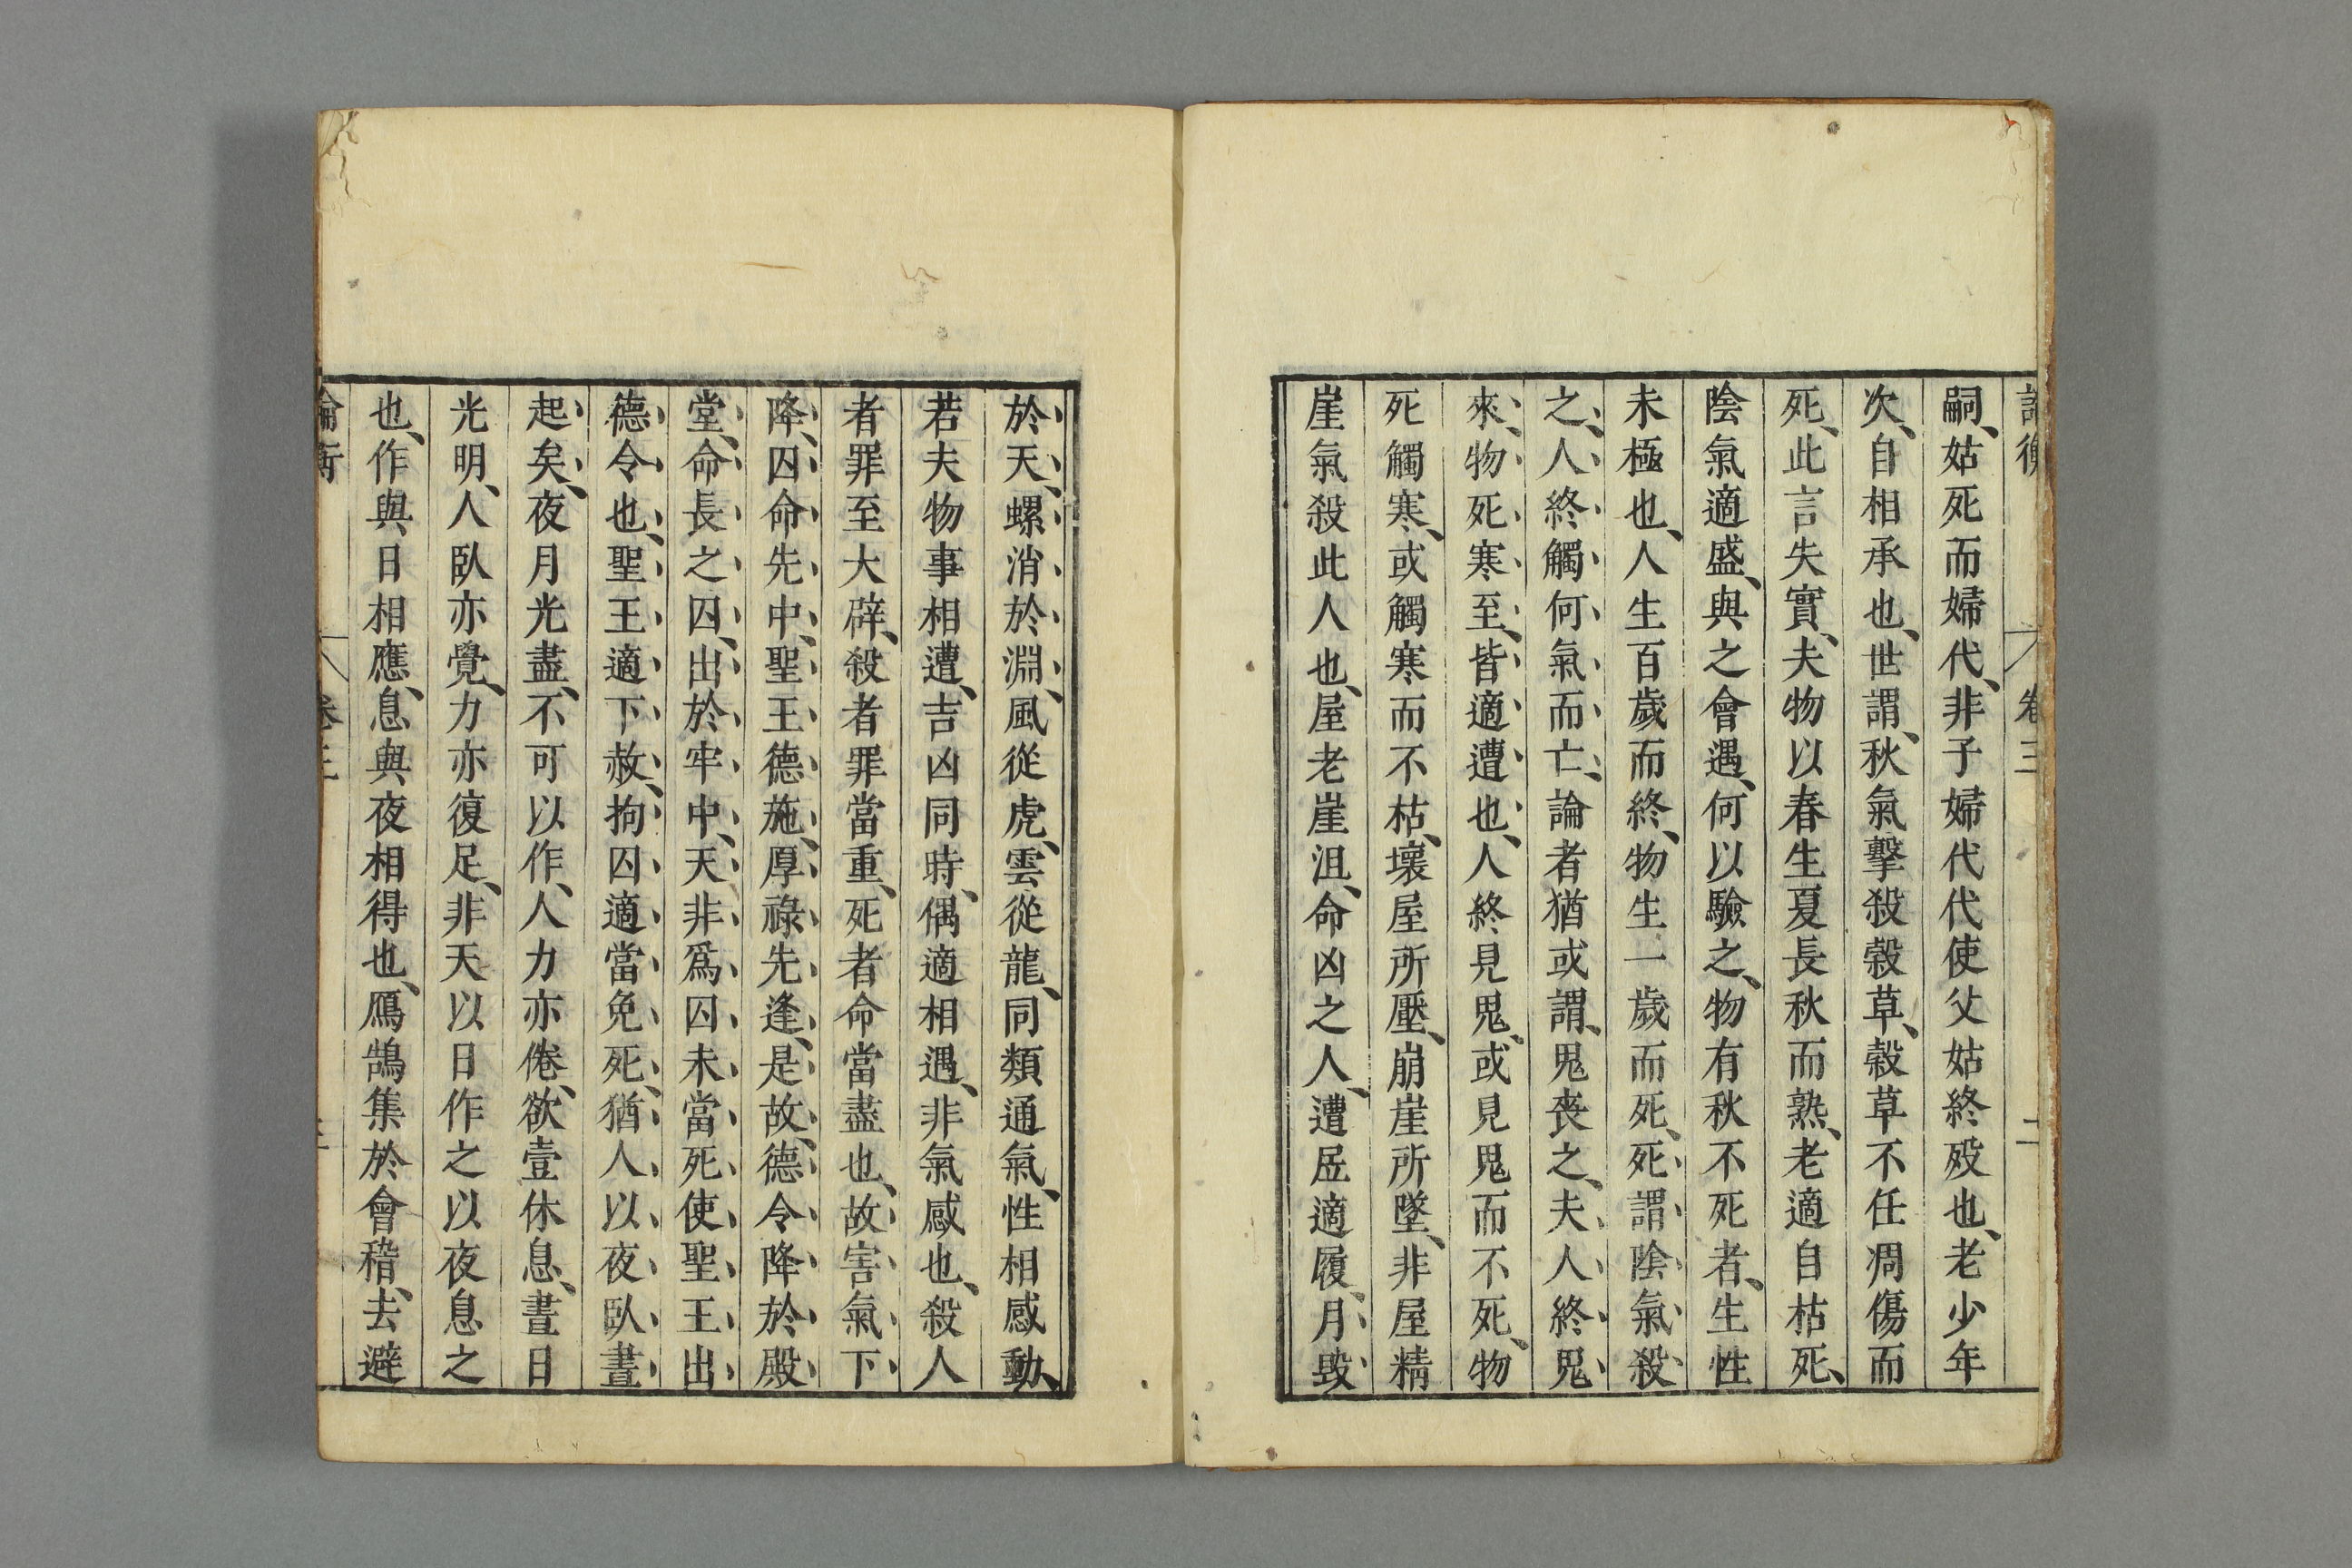 論衡　卷三　二
嗣、姑死而婦代、非子婦代代使父姑終殁也、老少年
次、自相承也、世謂、秋氣擊殺穀草、穀草不任凋傷而
死、此言失實、夫物以春生夏長秋而熟、老適自枯死、
陰氣適盛、與之會遇、何以驗之、物有秋不死者、生性
未極也、人生百歲而終、物生一歲而死、死謂陰氣殺
之、人終觸何氣而亡、論者猶或謂、鬼喪之、夫人終鬼
來、物死寒至、皆適遭也、人終見鬼、或見鬼而不死、物
死觸寒、或觸寒而不枯、壞屋所壓、崩崖所墜、非屋精
崖氣殺此人也、屋老崖沮、命凶之人、遭屈適履、月毁
於天、螺消於淵、風從虎、雲從龍、同類通氣、性相感動、
若夫物事相遭、吉凶同時、偶適相遇、非氣感也、殺人
者罪至大辟、殺者罪當重、死者命當盡也、故害氣下
降、囚命先中、聖王德施、厚祿先逢、是故、德令降於殿
堂、命長之囚、出於牢中、天非爲囚未當死使聖王出
德令也、聖王適下赦、拘囚適當免死、猶人以夜臥晝
起矣、夜月光盡、不可以作、人力亦倦、欲壹休息、晝日
光明、人臥亦覺、力亦復足、非天以日作之以夜息之
也、作與日相應、息與夜相得也、鴈鵠集於會稽、去避
論衡　卷三　三